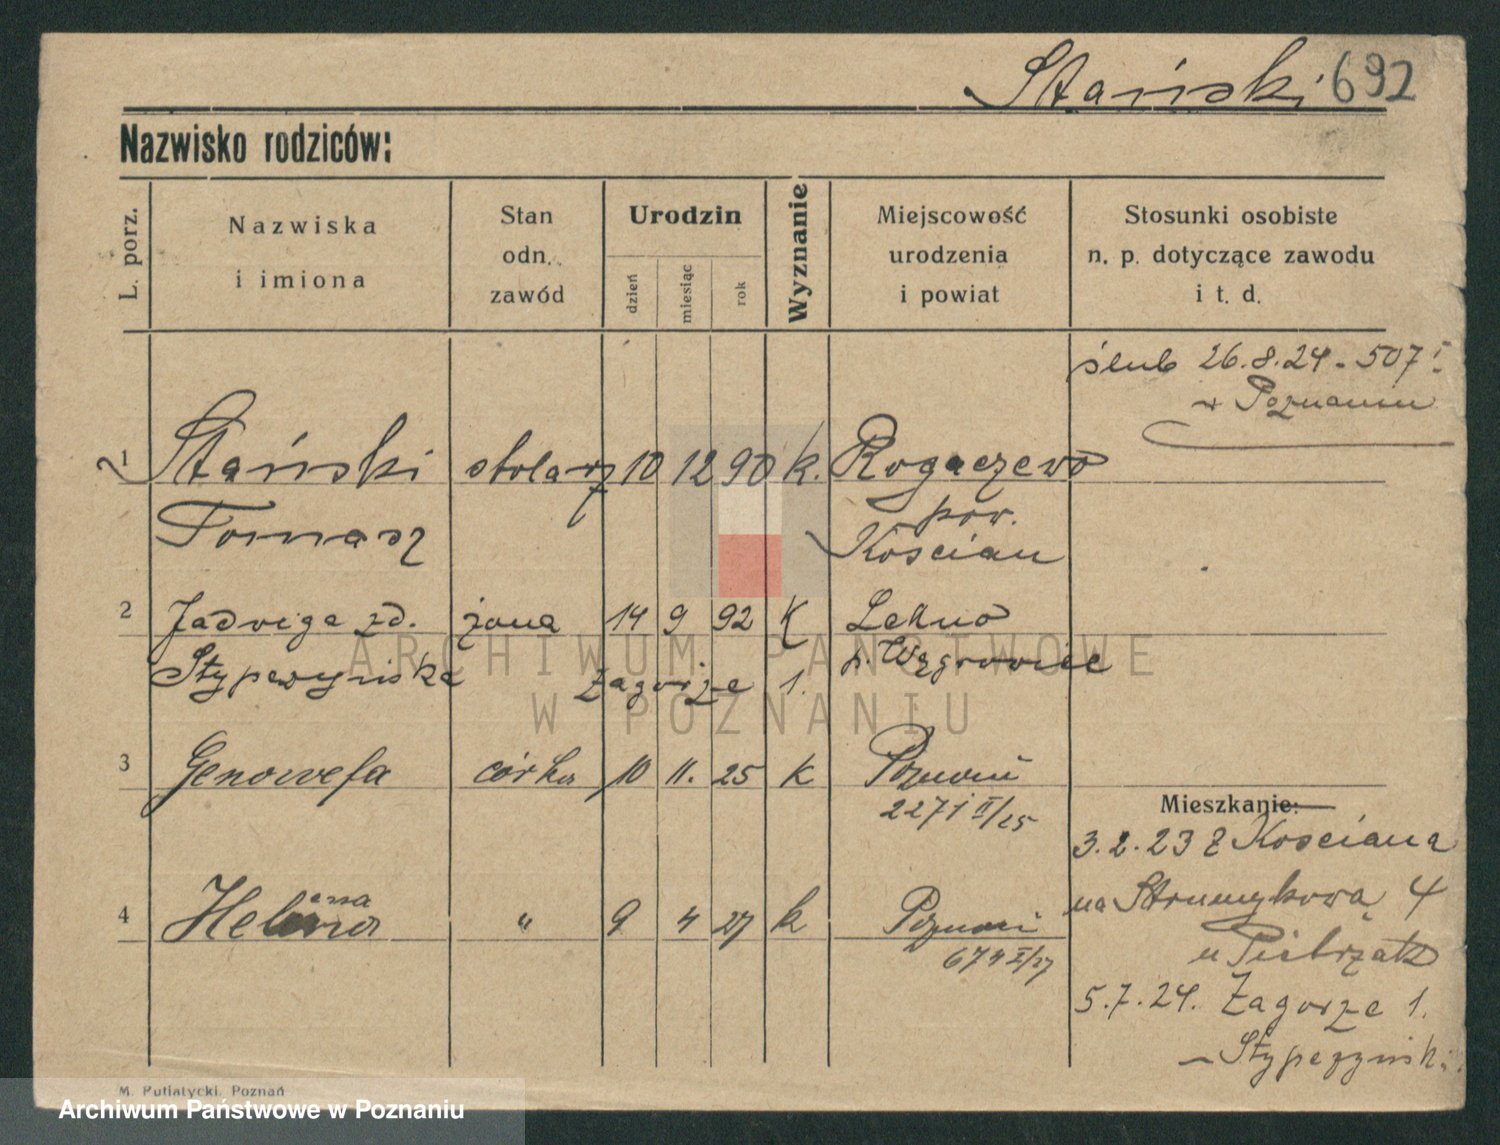 Stański 692
Nazwisko rodziców:
L. porz.
Nazwiska
i imiona
Stan
odn.
zawód
Urodzin
dzień
miesiąc
rok
Wyznanie
Miejscowość
urodzenia
i powiat
Stosunki osobiste
n. p. dotyczące zawodu
i t. d.
ślub 26.8.24 - 507 I
w Poznaniu
1 Stański stolarz 10 12 90 k. Rogaczewo
pow.
Tomasz Kościan
2 Jadwiga zd. żona 14 9 92 K Lekno
p. Wągrowiec
Zagorze 1.
3 Genowefa córka 10 11. 25 k Poznań
2271 II/25
Mieszkanie:
3.2.23 z Kościana
4 Helena " 9 4 27 k Poznań
na Strumykową 4
u
5.7.24. Zagorze 1.
M. Putiatycki, Poznań
ARCHIWUM PAŃSTWOWE
W POZNANIU
Archiwum Państwowe w Poznaniu